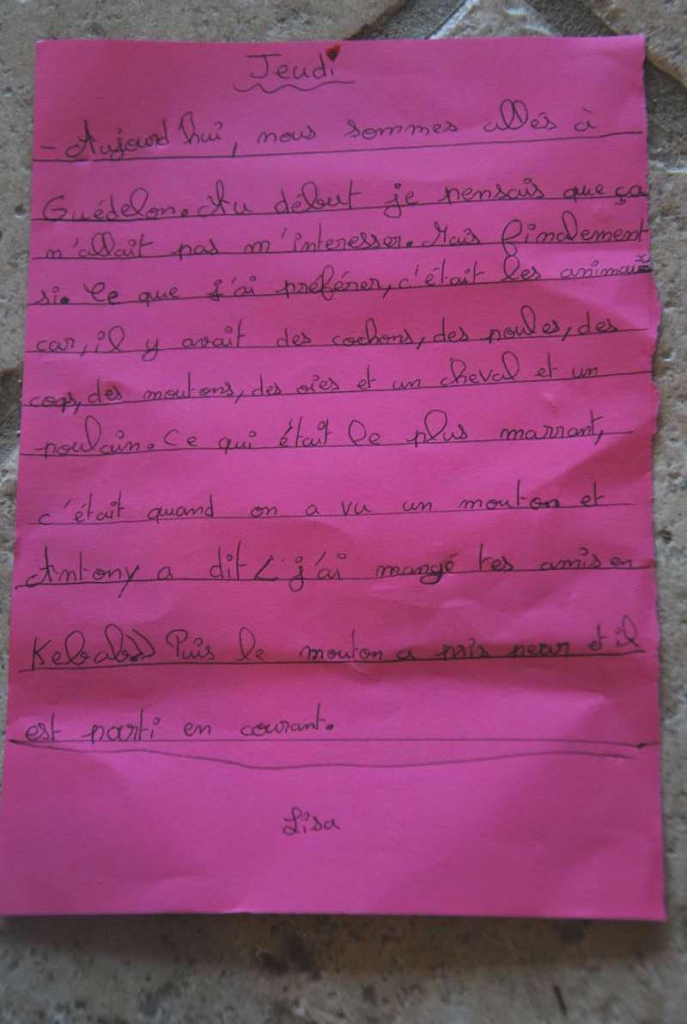 Jeudi
- Aujourd'hui, nous sommes allés à
Guédelon. Au début je pensais que ça
m'allait pas m'interesser. Mais finalement
si. Ce que j'ai préférer, c'était les animaux
car, il y avait des cochons, des poules, des
coqs, des moutons, des oies et un cheval et un
poulain. Ce qui était le plus marrant,
c'était quand on a vu un mouton et
Antony a dit << j'ai mangé tes amis en
Kebab>> Puis le mouton a pris peur et il
est parti en courant.
Lisa